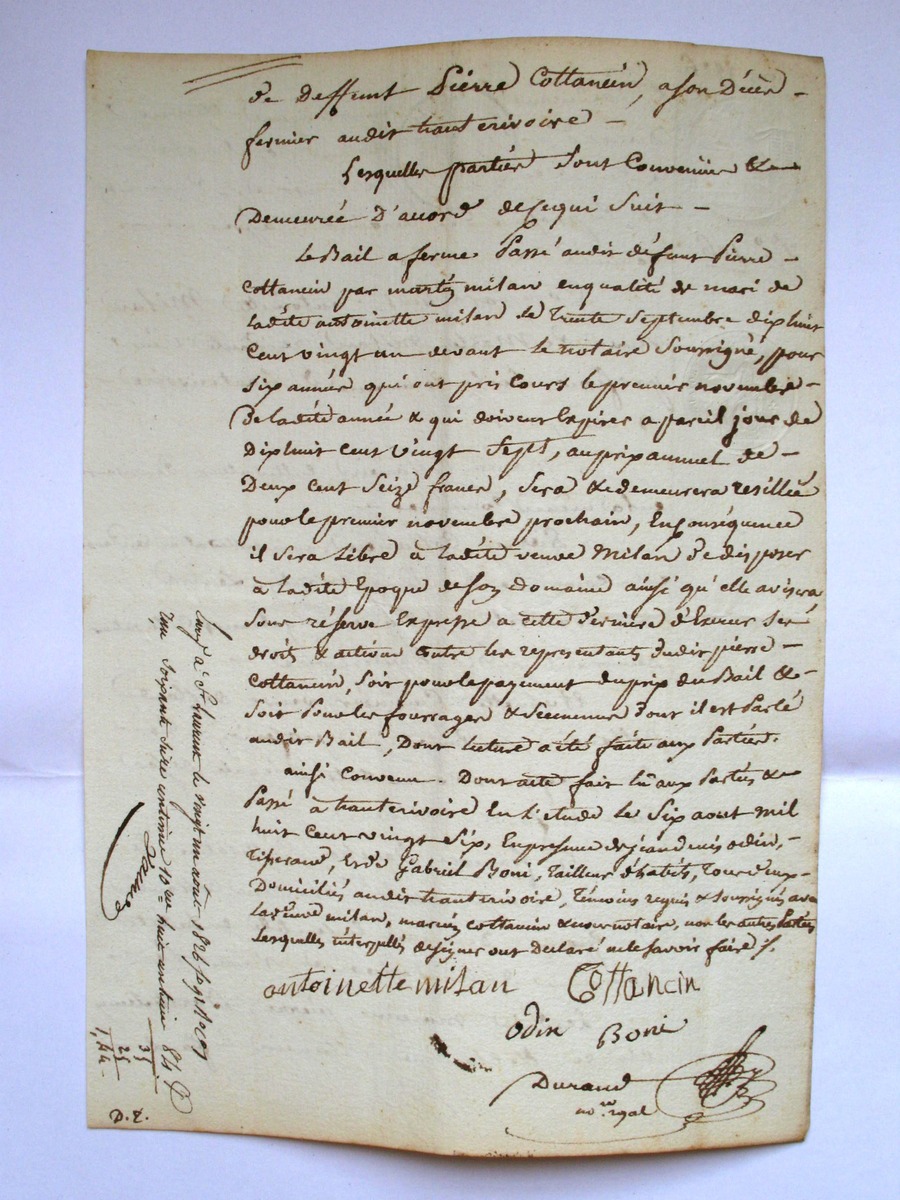 de deffunt Pierre Cottancin, a son Décès -
fermier audit hauterivoire -
Lesquelles parties sont Convenüe &
Demeurée D'acord de ce qui suit -
Le Bail a ferme Passé audit défunt Pierre -
Cottancin par martin milan en qualité de mari de
ladite antoinette milan le Trente Septembre dix huit
Cent vingt un devant le notaire Soussigné, pour
Six année qui ont pris Cours le premier novembre -
De ladite année & qui doivent Expirer a pareil jour de
Dix huit Cent Vingt Sept, au prix annuel de -
Deux Cent Seize francs, Sera & demeurera resilliée
pour le premier novembre prochain, En Conséquence
il Sera Libre à ladite veuve Milan de disposer
à ladite Epoque de son domaine ainsi qu'elle avisera
Sous réserve Expresse a cette Dernière d'Exercer Ses
droits & action Contre les representants dudit pierre -
Cottancin, Soit pour le payement du prix du Bail & -
Soit Pour les fourrages & Semences Dont il est Parlé
audit Bail, Dont lecture a été faite aux Parties.
ainsi Convenu. Dont acte fait lû aux Parties &
Passé à hauterivoire En l'étude le Six aout mil
huit Cent vingt Six, En presence de jean denis odin, -
Tisserand, & de Gabriel Boni, Tailleur d'habits, Tous deux -
Domiciliés audit hauterivoire, Témoins requis & Soussignés avec
ladite veuve milan, cottancin & nous notaire, non les autres Parties
Lesquelles interpellés de signer ont Déclaré ne le savoir faire ./.
antoinette milan Cottancin
odin Boni
Durand
no.re royal
à St. laurent le vingt un août 1826
huit
84
35
25
1,44
D. Z.